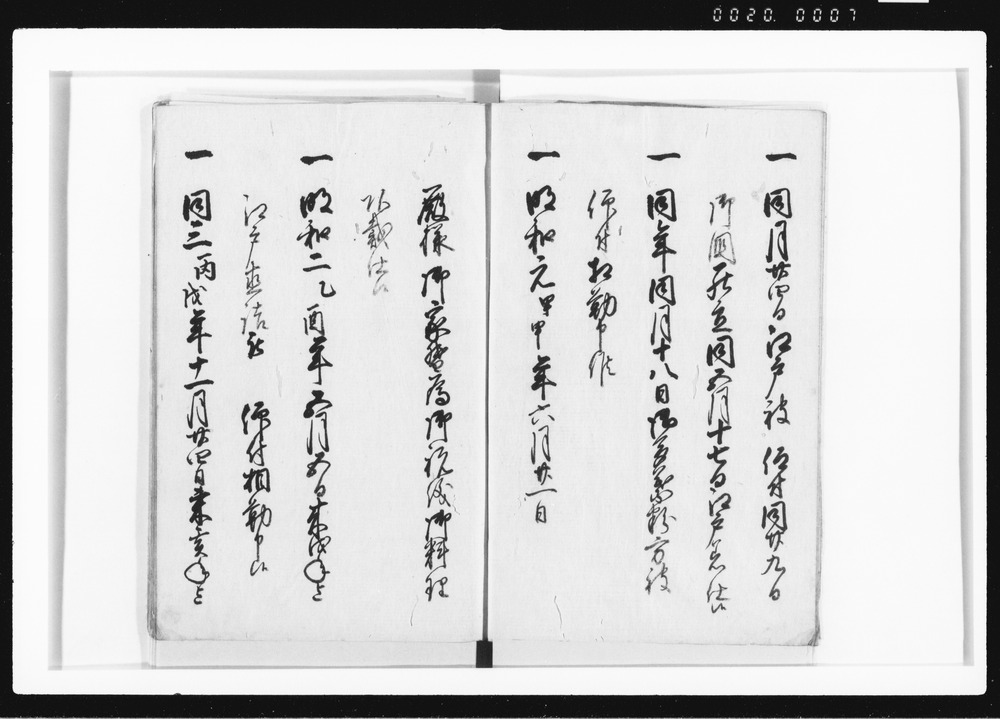 0020. 0007
一 同月廿四日江戸被 仰付同廿九日
御国罷立同五月十七日江戸着仕候
一 同年同月十八日御多葉粉方被
仰付相勤申候
一 明和元甲申年六月廿一日
殿様御家督為御祝儀御料理
頂戴仕候
一 明和二乙酉年五月五日来戌年迄
江戸直詰被 仰付相勤申候
一 同三丙戌年十一月廿四日来亥年迄